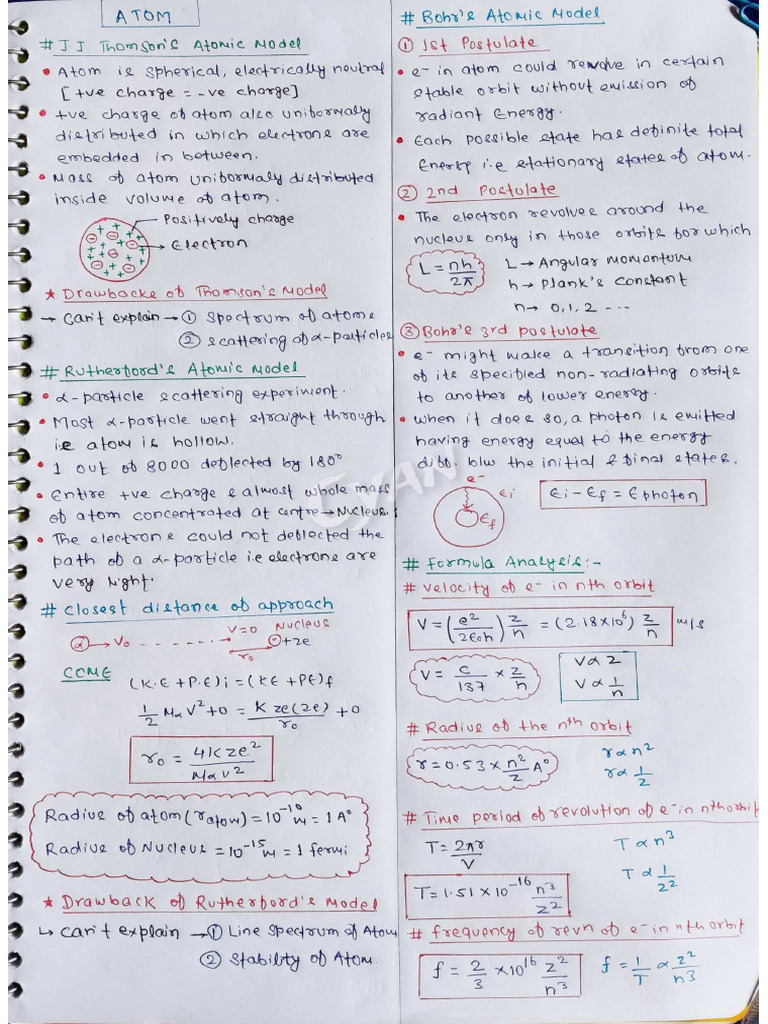 ATOM
# JJ Thomson's Atomic Model
• Atom is spherical, electrically neutral
[+ve charge = -ve charge]
• +ve charge of atom also uniformaly
distributed in which electrons are
embedded in between.
• Mass of atom uniformaly distributed
inside volume of atom.
Positively charge
Electron
★ Drawbacks of Thomson's Model
→ Can't explain → ① Spectrum of atoms
② scattering of α-particles
# Rutherford's Atomic Model
• α-particle scattering experiment.
• Most α-particle went straight through
i.e atom is hollow.
• 1 out of 8000 deflected by 180°
• Entire +ve charge & almost whole mass
of atom concentrated at centre → Nucleus.
• The electrons could not deflected the
path of a α-particle i.e electrons are
very light.
# Closest distance of approach
α → V₀ - - - - - - V=0 Nucleus +ze
r₀
COME
(K.E + P.E)i = (KE + PE)f
1/2 Mα V² + 0 = K ze(2e)/r₀ + 0
r₀ = 4Kze²/Mαv²
Radius of atom (r atom) = 10⁻¹⁰ m = 1 A°
Radius of Nucleus = 10⁻¹⁵ m = 1 fermi
★ Drawback of Rutherford's Model
↳ can't explain → ① Line Spectrum of Atom
② Stability of Atom.
# Bohr's Atomic Model
① 1st Postulate
• e- in atom could revolve in certain
stable orbit without emission of
radiant Energy.
• Each possible state has definite total
Energy i.e stationary states of atom.
② 2nd Postulate
• The electron revolves around the
nucleus only in those orbits for which
L = nh/2π
L → Angular momentum
h → Plank's Constant
n → 0,1,2 ---
③ Bohr's 3rd postulate
• e- might make a transition from one
of its specified non-radiating orbits
to another of lower energy.
• when it does so, a photon is emitted
having energy equal to the energy
diff. b/w the initial & final states.
e-
Ei
Ef
Ei - Ef = Ephoton
# Formula Analysis:-
# velocity of e- in nth orbit
V = (e²/2ε₀h) z/n = (2.18×10⁶) z/n m/s
V = c/137 × z/n
V ∝ Z
V ∝ 1/n
# Radius of the nth orbit
r = 0.53 × n²/z A°
r ∝ n²
r ∝ 1/z
# Time period of revolution of e- in nth orbit
T = 2πr/V
T ∝ n³
T ∝ 1/z²
T = 1.51 × 10⁻¹⁶ n³/z²
# frequency of revn of e- in nth orbit
f = 2/3 × 10¹⁶ z²/n³
f = 1/T ∝ z²/n³